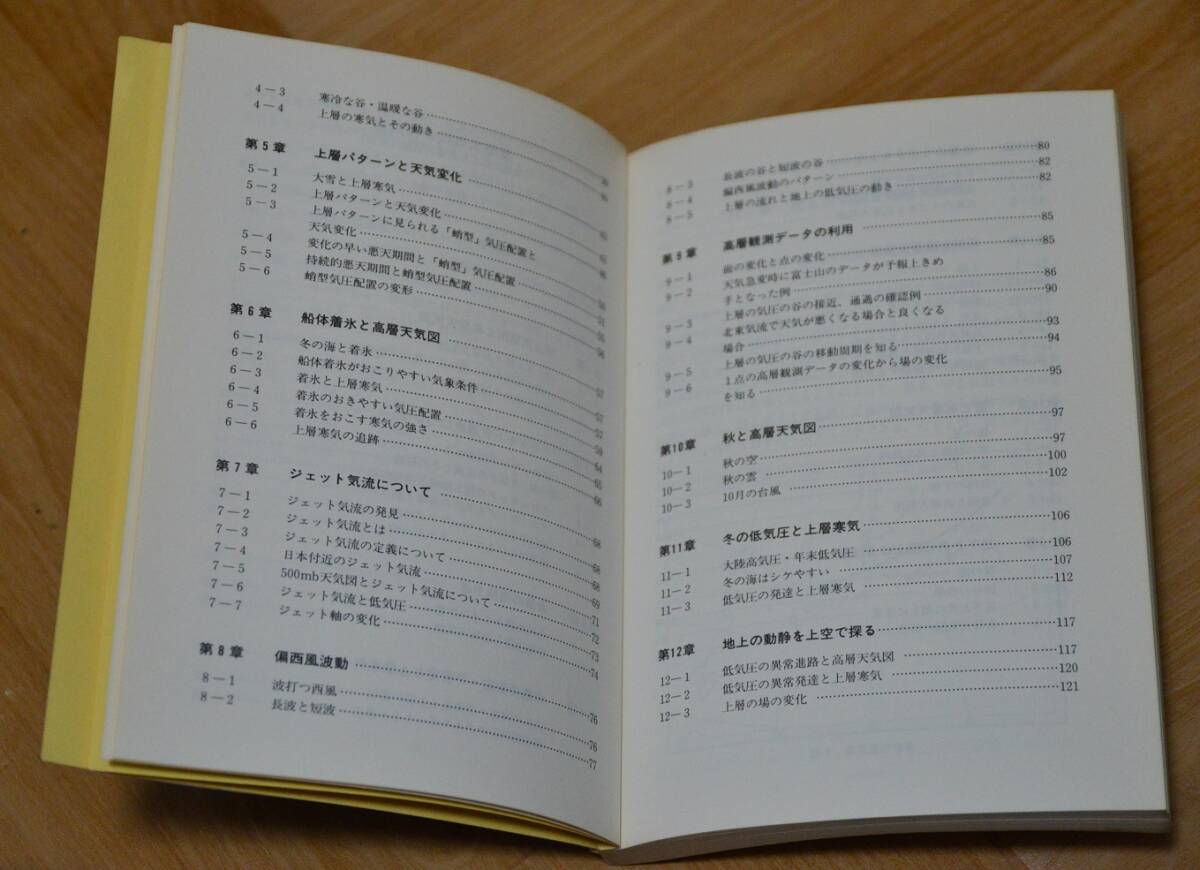 4－3 寒冷な谷・温暖な谷
4－4 上層の寒気とその動き
第5章 上層パターンと天気変化
5－1 大雪と上層寒気
5－2 上層パターンと天気変化
5－3 上層パターンに見られる「蛸型」気圧配置と
天気変化
5－4 変化の早い悪天期間と「蛸型」気圧配置
5－5 持続的悪天期間と蛸型気圧配置
5－6 蛸型気圧配置の変形
第6章 船体着氷と高層天気図
6－1 冬の海と着氷 57
6－2 船体着氷がおこりやすい気象条件 57
6－3 着氷と上層寒気 57
6－4 着氷のおきやすい気圧配置 59
6－5 着氷をおこす寒気の強さ 64
6－6 上層寒気の追跡 65
第7章 ジェット気流について 66
7－1 ジェット気流の発見 68
7－2 ジェット気流とは 68
7－3 ジェット気流の定義について 68
7－4 日本付近のジェット気流 69
7－5 500mb天気図とジェット気流について 71
7－6 ジェット気流と低気圧 72
7－7 ジェット軸の変化 73
第8章 偏西風波動 74
8－1 波打つ西風 76
8－2 長波と短波 76
77
8－3 長波の谷と短波の谷 80
8－4 偏西風波動のパターン 82
8－5 上層の流れと地上の低気圧の動き 82
第9章 高層観測データの利用 85
9－1 面の変化と点の変化 85
9－2 天気急変時に富士山のデータが予報上きめ
手となった例 86
9－3 上層の気圧の谷の接近、通過の確認例 90
9－4 北東気流で天気が悪くなる場合と良くなる
場合 93
9－5 上層の気圧の谷の移動周期を知る 94
9－6 1点の高層観測データの変化から場の変化
を知る 95
第10章 秋と高層天気図 97
10－1 秋の空 97
10－2 秋の雲 100
10－3 10月の台風 102
第11章 冬の低気圧と上層寒気 106
11－1 大陸高気圧・年末低気圧 106
11－2 冬の海はシケやすい 107
11－3 低気圧の発達と上層寒気 112
第12章 地上の動静を上空で探る 117
12－1 低気圧の異常進路と高層天気図 117
12－2 低気圧の異常発達と上層寒気 120
12－3 上層の場の変化 121